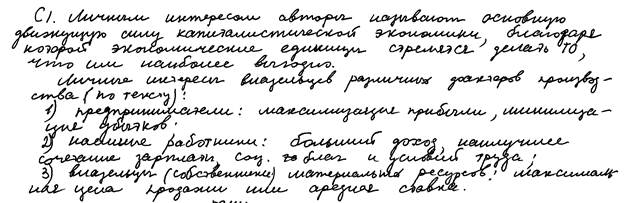 С1. Личным интересом авторы называют основную
движущую силу капиталистической экономики, благодаря
которой экономические единицы стремятся делать то,
что им наиболее выгодно.
Личные интересы владельцев различных факторов производ-
ства (по тексту):
1) предприниматели: максимизация прибыли, минимиза-
ция убытков.
2) наемные работники: больший доход, наилучшее
сочетание зарплаты, соц. благ и условий труда;
3) владельцы (собственники) материальных ресурсов: максималь
ная цена продажи или арендная ставка.